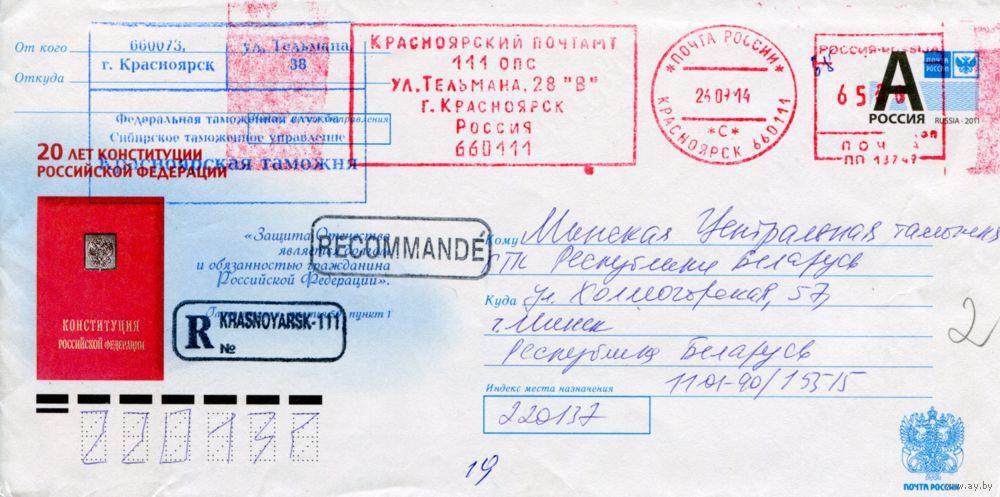 От кого
660073, ул. Тельмана
г. Красноярск 38
Откуда
Федеральная таможенная служба
Сибирское таможенное управление
Красноярская таможня
КРАСНОЯРСКИЙ ПОЧТАМТ
111 ОПС
УЛ.ТЕЛЬМАНА, 28 "В"
Г. КРАСНОЯРСК
РОССИЯ
660111
*ПОЧТА РОССИИ*
24 07 14
*С*
КРАСНОЯРСК 660111
РОССИЯ-RUSSIA
А
РОССИЯ
ПОЧТА РОССИИ
RUSSIA - 2011
20 ЛЕТ КОНСТИТУЦИИ
РОССИЙСКОЙ ФЕДЕРАЦИИ
КОНСТИТУЦИЯ
РОССИЙСКОЙ ФЕДЕРАЦИИ
«Защита Отечества
является долгом
и обязанностью гражданина
Российской Федерации».
пункт 1
RECOMMANDÉ
R KRASNOYARSK-111
№
Кому Минская Центральная таможня
ГТК Республики Беларусь
Куда ул Холмогорская, 57
г. Минск
Республика Беларусь
1101-90/15515
Индекс места назначения
220137
220137
19
2
ПОЧТА РОССИИ
www.ay.by